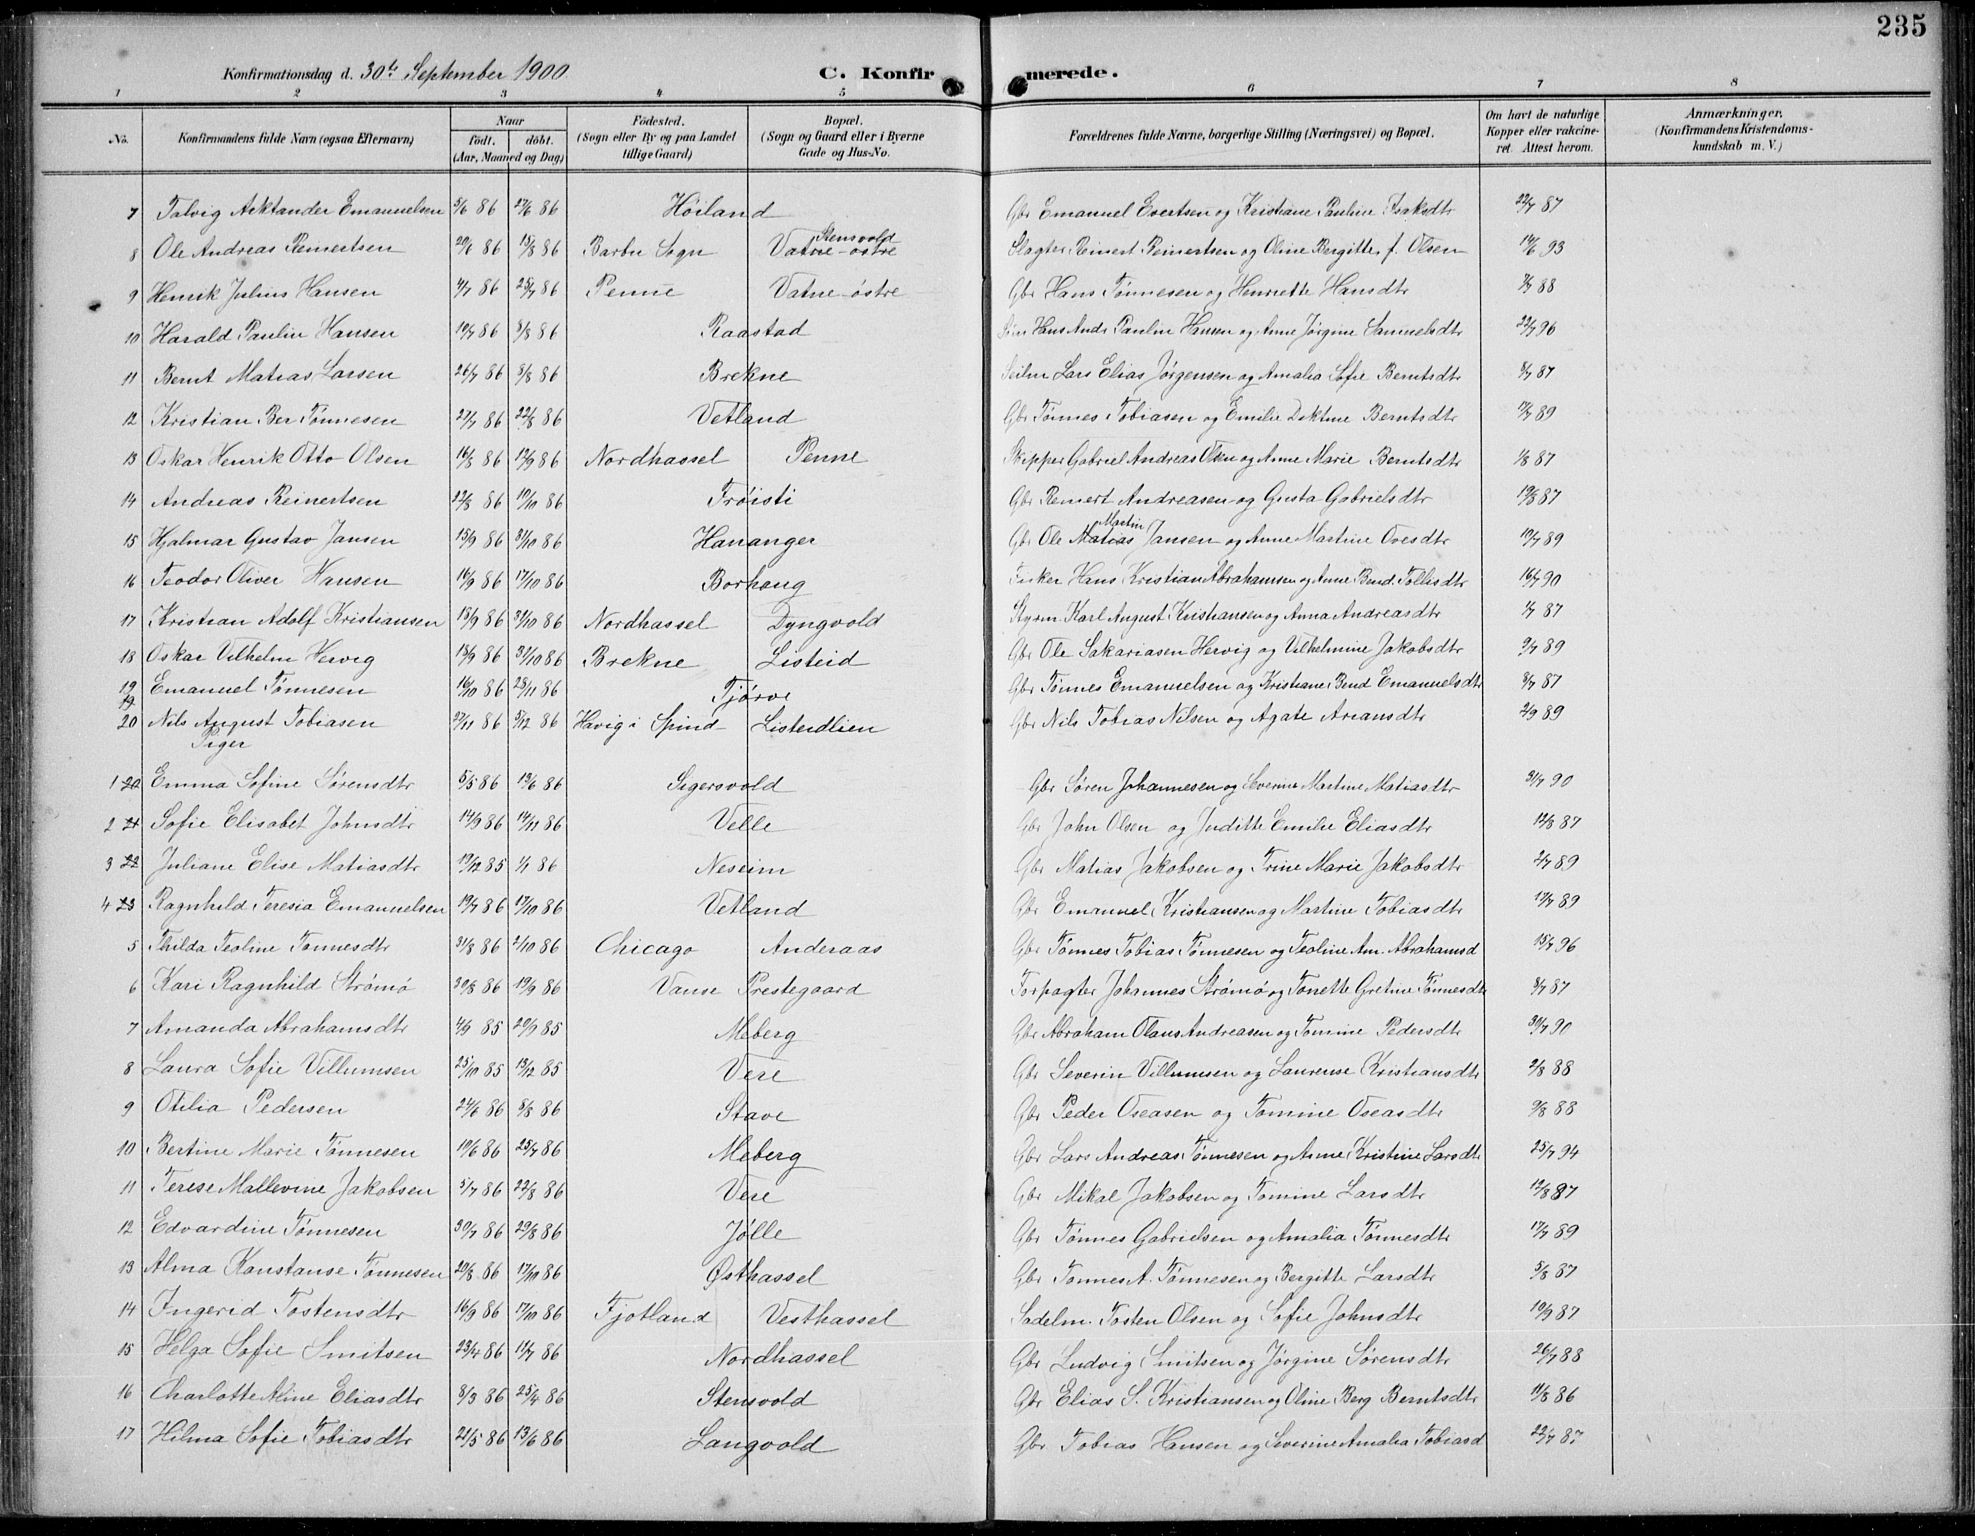 235
Konfirmationsdag d. 30te September 1900 C. Konfirmerede.
1 2 3 4 5 6 7 8
No. Konfirmandens fulde Navn (ogsaa Efternavn) Naar født. døbt. (Aar, Maaned og Dag) Fødested. (Sogn eller By og paa Landet tillige Gaard) Bopæl. (Sogn og Gaard eller i Byerne Gade og Hus-No. Forældrenes fulde Navne, borgerlige Stilling (Næringsvei) og Bopæl. Om havt de naturlige Kopper eller vakcineret. Attest herom. Anmærkninger. (Konfirmandens Kristendomskundskab m. V.)
7 Talvig Arktander Emanuelsen 5/6 86 27/6 86 Høiland Gbr Emanuel Evertsen og Kristiane Pauline Isaksdtr 22/7 87
Stensvold
8 Ole Andreas Reinertsen 29/6 86 15/8 86 Barbu Sogn Vatne østre Slagter Reinert Reinertsen og Oline Bergitte f. Olsen 14/6 93
9 Henrik Julius Hansen 4/7 86 25/7 86 Penne Vatne-østre Gbr Hans Tønnesen og Henriette Hansdtr 88
10 Harald Paulin Hansen 19/7 86 8/8 86 Raastad Hans Andr Paulin Hansen og Anne Jørgine Samuelsdtr 22/7 96
11 Bernt Matias Larsen 26/7 86 8/8 86 Brekne Seilm Lars Elias Jørgensen og Amalia Sofie Berntsdtr 8/7 87
12 Kristian Ber Tønnesen 27/7 86 22/8 86 Vetland Gbr Tønnes Tobiasen og Emilie Dektine Berntsdtr 17/7 89
13 Oskar Henrik Otto Olsen 16/8 86 12/9 86 Nordhassel Penne Skipper Gabriel Andreas Olsen og Anne Marie Berntsdtr 1/8 87
14 Andreas Reinertsen 22/8 86 10/10 86 Trøisti Gbr Reinert Andreasen og Gusta Gabrielsdtr 19/8 87
Martin
15 Hjalmar Gustav Jansen 15/9 86 31/10 86 Hananger Gbr Ole Matias Jansen og Anne Martine Ovesdtr 19/7 89
16 Teodor Oliver Hansen 16/9 86 17/10 86 Borhaug Fisker Hans Kristian Abrahamsen og Anne Bend. Tollisdtr 16/7 90
17 Kristian Adolf Kristiansen 18/9 86 31/10 86 Nordhassel Dyngvold Styrm Karl August Kristiansen og Anna Andreasdtr 1/7 87
18 Oskar Vilhelm Hervig 18/9 86 31/10 86 Brekne Listeid Gbr Ole Sakariasen Hervig og Vilhelmine Jakobsdtr 9/7 89
19 Emanuel Tønnesen 16/10 86 28/11 86 Tjørve Gbr Tønnes Emanuelsen og Kristiane Bend Emanuelsdtr 8/7 87
20 Nils August Tobiasen 27/11 86 5/12 86 Havig i Spind Listeidlien Gbr Nils Tobias Nilsen og Agate Ariansdtr 2/9 89
Piger
1 20 Emma Sofine Sørensdtr 5/5 86 13/6 86 Sigersvold Gbr Søren Johannesen og Severine Martine Matiasdtr 31/7 90
2 21 Sofie Elisabet Johnsdtr 14/9 86 14/11 86 Velle Gbr John Olsen og Juditte Emilie Eliasdtr 12/8 87
3 22 Juliane Elise Matiasdtr 19/12 85 1/1 86 Neseim Gbr Matias Jakobsen og Trine Marie Jakobsdtr 2/7 89
4 23 Ragnhild Teresia Emanuelsen 19/7 86 17/10 86 Vetland Gbr Emanuel Kristiansen og Martine Tobiasdtr 17/7 89
5 Thilda Teoline Tønnesdtr 31/8 86 2/10 86 Chicago Anderaas Gbr Tønnes Tobias Tønnesen og Teoline Am. Abrahamsd 15/7 96
6 Kari Ragnhild Strømø 30/8 86 19/9 86 Vanse Prestegaard Forpagter Johannes Strømø og Tonette Gretine Tønnesdtr 8/7 87
7 Amanda Abrahamsdtr 4/9 85 20/9 85 Meberg Gbr Abraham Olaus Andreasen og Tomine Pedersdtr 30/7 90
8 Laura Sofie Villumsen 25/10 85 13/12 85 Vere Gbr Severin Villumsen og Laurense Kristiansdtr 2/8 88
9 Otilia Pedersen 24/6 86 8/8 86 Stave Gbr Peder Oseasen og Tomine Oseasdtr 9/8 88
10 Bertine Marie Tønnesen 19/6 86 25/7 86 Meberg Gbr Lars Andreas Tønnesen og Anne Kristine Larsdtr 25/7 94
11 Terese Mallevine Jakobsen 5/7 86 22/8 86 Vere Gbr Mikal Jakobsen og Tomine Larsdtr 12/8 87
12 Edvardine Tønnesen 30/7 86 29/8 86 Jølle Gbr Tønnes Gabrielsen og Amalia Tønnesdtr 17/7 89
13 Alma Konstanse Tønnesen 20/8 86 17/10 86 Østhassel Gbr Tønnes A. Tønnesen og Bergitte Larsdtr 5/8 87
14 Ingerid Tostensdtr 16/9 86 17/10 86 Fjotland Vesthassel Sadelm. Tosten Olsen og Sofie Johnsdtr 19/9 87
15 Helga Sofie Smitsen 23/4 86 11/7 86 Nordhassel Gbr Ludvig Smitsen og Jørgine Sørensdtr 26/7 88
16 Charlotte Aline Eliasdtr 8/3 86 25/4 86 Stensvold Gbr Elias S. Kristiansen og Oline Berg Berntsdtr 11/8 86
17 Hilma Sofie Tobiasdtr 21/5 86 13/6 86 Langvold Gbr Tobias Hansen og Severine Amalia Tobiasd 22/7 87